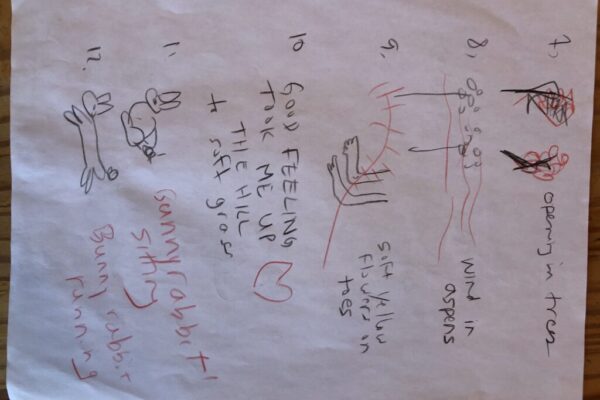 7. opening in trees
8. wind in
aspens
9. soft yellow
flowers in
toes
10. GOOD FEELING
TOOK ME UP
THE HILL
to soft grass
11. Bunny rabbit
sitting
12. Bunny rabbit
running